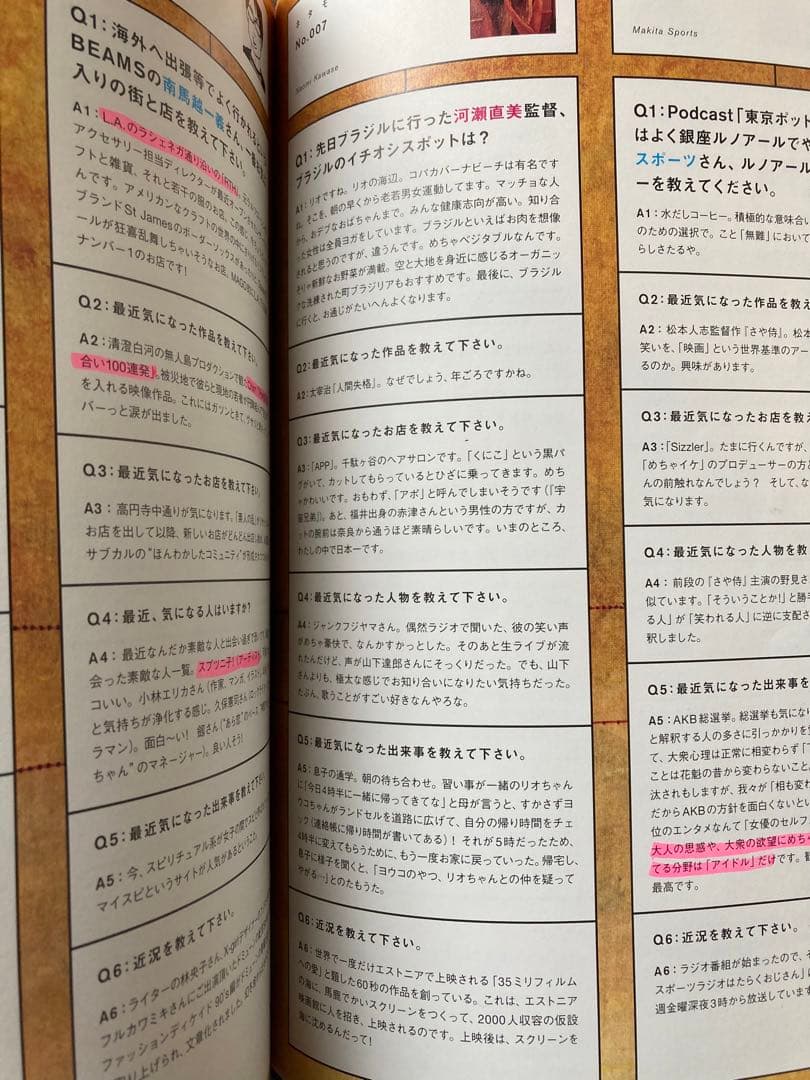 Q1：海外へ出張等でよく行かれる
BEAMSの南馬越一義さん、一番
入りの街と店を教えて下さい。
A1：L.A.のラシェネガ通り沿いの「RTH」。
アクセサリー担当ディレクターが最近オープン
フトと雑貨、それと若干の服のお店。
んです。アメリカンなクラフトの世界の中に
ブランドSt Jamesのボーダーソックス
ールが狂喜乱舞しちゃいそうなお店、
ナンバー1のお店です！
Q2：最近気になった作品を教えて下さい。
A2：清澄白河の無人島プロダクションで観た
合い100連発」。被災地で彼らと現地の若者が
を入れる映像作品。これにはガツンときて、
バーっと涙が出ました。
Q3：最近気になったお店を教えて下さい。
A3：高円寺中通りが気になります。「素人の乱」
お店を出して以降、新しいお店がどんどん
サブカルの“ほんわかしたコミュニティ”が
Q4：最近、気になる人はいますか？
A4：最近なんだか素敵な人と出会い過ぎで
会った素敵な人一覧。スプツニ子！（アーティスト
コいい。小林エリカさん（作家、マンガ、イラスト
と気持ちが浄化する感じ。久保憲司さん（ロック
ラマン）。面白〜い！ 掘さん（“あら恋”のベース
ちゃん”のマネージャー）。良い人そう！
Q5：最近気になった出来事を教えて下さい。
A5：今、スピリチュアル系が女子の間で
マイスピというサイトが人気があるということ。
Q6：近況を教えて下さい。
A6：ライターの林央子さん、X-girlデザイナーの
フルカワミキさんにご出演頂いたドミューン
ファッションディケイド 90's編が
り上げられ、文章化されました。
ネタモ
No.007
Naomi Kawase
Q1：先日ブラジルに行った河瀬直美監督、
ブラジルのイチオシスポットは？
A1：リオですね。リオの海辺。コパカバーナビーチは有名です
ね。そこを、朝の早くから老若男女運動してます。マッチョな人
から、おデブなおばちゃんまで。みんな健康志向が高い。知り合
った女性は全員ヨガをしています。ブラジルといえばお肉を想像
されると思うのですが、違うんです。めちゃベジタブルなんです。
そりゃ新鮮なお野菜が満載。空と大地を身近に感じるオーガニッ
クな洗練された町ブラジリアもおすすめです。最後に、ブラジル
に行くと、お通じがたいへんよくなります。
Q2：最近気になった作品を教えて下さい。
A2：太宰治『人間失格』。なぜでしょう、年ごろですかね。
Q3：最近気になったお店を教えて下さい。
A3：「APP」。千駄ヶ谷のヘアサロンです。「くにこ」という黒パ
グがいて、カットしてもらっているとひざに乗ってきます。めち
ゃかわいいです。おもわず、「アポ」と呼んでしまいそうです（『宇
宙兄弟』）。あと、福井出身の赤津さんという男性の方ですが、カ
ットの腕前は奈良から通うほど素晴らしいです。いまのところ、
わたしの中で日本一です。
Q4：最近気になった人物を教えて下さい。
A4：ジャンクフジヤマさん。偶然ラジオで聞いた、彼の笑い声
がめちゃ豪快で、なんかすかっとした。そのあと生ライブが流
れたんだけど、声が山下達郎さんにそっくりだった。でも、山下
さんよりも、極太な感じでお知り合いになりたい気持ちだった。
たぶん、歌うことがすごい好きなんやろな。
Q5：最近気になった出来事を教えて下さい。
A5：息子の通学。朝の待ち合わせ。習い事が一緒のリオちゃん
に「今日4時半に一緒に帰ってきてな」と母が言うと、すかさずヨ
ウコちゃんがランドセルを道路に広げて、自分の帰り時間をチェ
ック（連絡帳に帰り時間が書いてある）！ それが5時だったため、
4時半に変えてもらうために、もう一度お家に戻っていった。帰宅し、
息子に様子を聞くと、「ヨウコのやつ、リオちゃんとの仲を疑って
やがる…」とのたもうた。
Q6：近況を教えて下さい。
A6：世界で一度だけエストニアで上映される「35ミリフィルム
への愛」と題した60秒の作品を創っている。これは、エストニア
の海に、馬鹿でかいスクリーンをつくって、2000人収容の仮設
映画館に人を招き、上映されるのです。上映後は、スクリーンを
海に沈めるんだって！
Makita Sports
Q1：Podcast「東京ポット
はよく銀座ルノアールでや
スポーツさん、ルノアール
ーを教えてください。
A1：水だしコーヒー。積極的な意味合い
のための選択で。こと「無難」において
らしさたるや。
Q2：最近気になった作品を教え
A2：松本人志監督作『さや侍』。松本
笑いを、「映画」という世界基準のアー
るのか。興味があります。
Q3：最近気になったお店を教え
A3：「Sizzler」。たまに行くんですが、
「めちゃイケ」のプロデューサーの方と
んの前触れなんでしょう？ そして、な
気になります。
Q4：最近気になった人物を教
A4：前段の『さや侍』主演の野見さ
似ています。「そういうことか！」と勝手
る人」が「笑われる人」に逆に支配さ
釈しました。
Q5：最近気になった出来事を
A5：AKB総選挙。総選挙も気になり
と解釈する人の多さに引っかかりを
て、大衆心理は正常に相変わらず「
ことは花魁の昔から変わらないこと。
汰されもしますが、我々が「相も変わ
だからAKBの方針を面白くないとい
位のエンタメなんて「女優のセルフ
大人の思惑や、大衆の欲望にめちゃ
てる分野は「アイドル」だけです。
最高です。
Q6：近況を教えて下さい。
A6：ラジオ番組が始まったので、そ
スポーツラジオはたらくおじさん」
週金曜深夜3時から放送しています